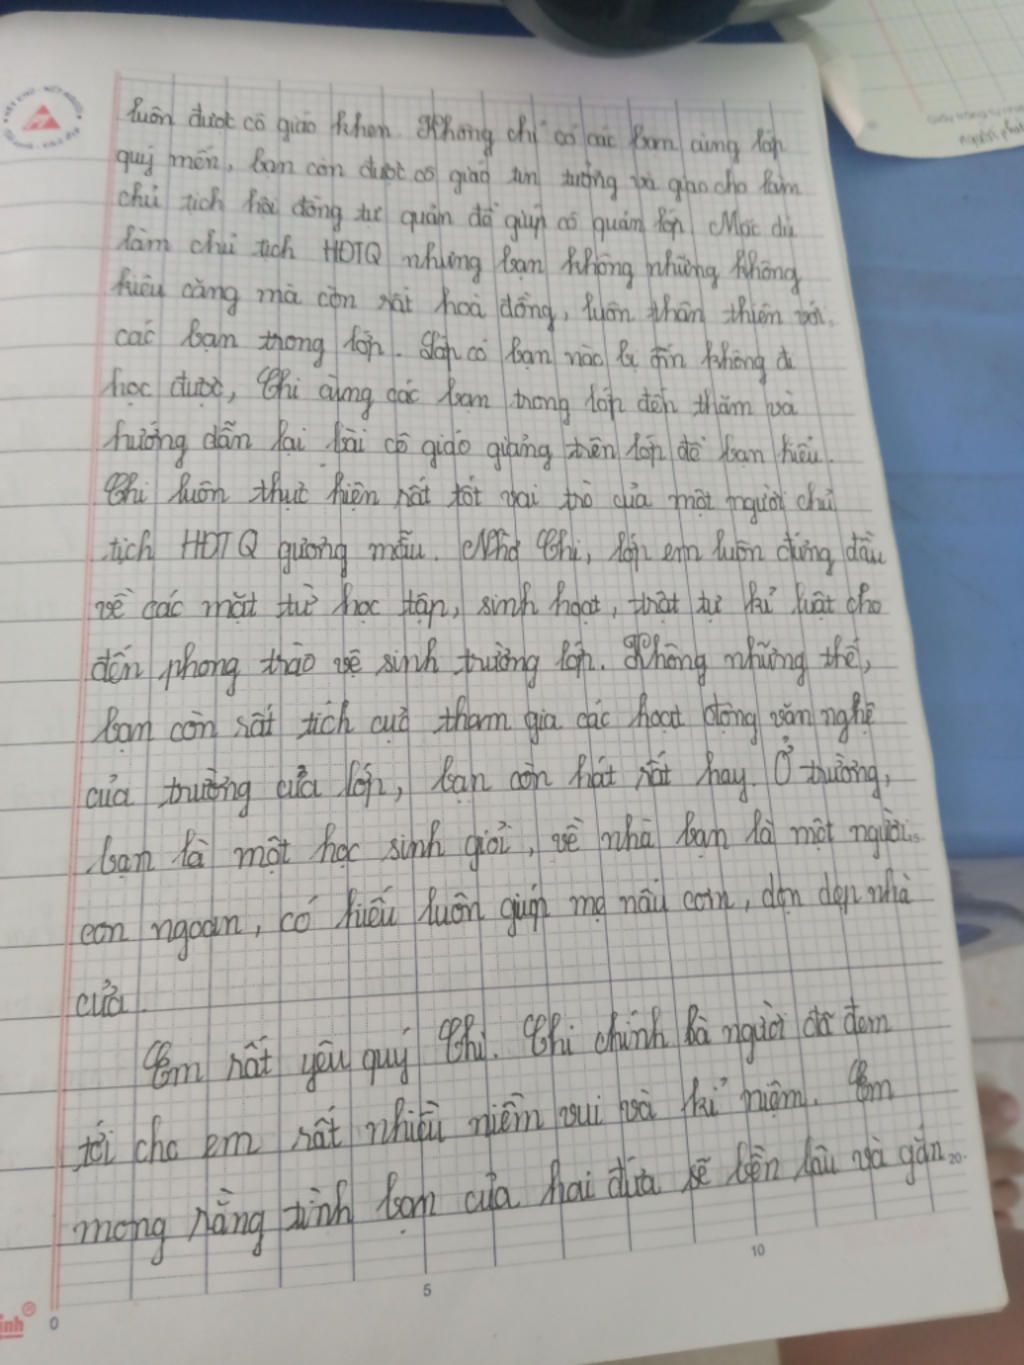 luôn được cô giáo khen. Không chỉ có các bạn cùng lớp
quý mến, bạn còn được cô giáo tin tưởng và giao cho làm
chủ tịch hội đồng tự quản để giúp cô quản lớp. Mặc dù
làm chủ tịch HĐTQ nhưng bạn không những không
kiêu căng mà còn rất hoà đồng, luôn thân thiện với
các bạn trong lớp. Lớp có bạn nào bị ốm không đi
học được, Chi cùng các bạn trong lớp đến thăm và
hướng dẫn lại bài cô giáo giảng trên lớp để bạn hiểu.
Chi luôn thực hiện rất tốt vai trò của một người chủ
tịch HĐTQ gương mẫu. Nhờ Chi, lớp em luôn đứng đầu
về các mặt từ học tập, sinh hoạt, trật tự kỉ luật cho
đến phong trào vệ sinh trường lớp. Không những thế,
bạn còn rất tích cực tham gia các hoạt động văn nghệ
của trường của lớp, bạn còn hát rất hay. Ở trường,
bạn là một học sinh giỏi, về nhà bạn là một người
con ngoan, có hiếu luôn giúp mẹ nấu cơm, dọn dẹp nhà
cửa.
Em rất yêu quý Chi. Chi chính là người đã đem
tới cho em rất nhiều niềm vui và kỉ niệm. Em
mong rằng tình bạn của hai đứa sẽ bền lâu và gắn
20
0 5 10